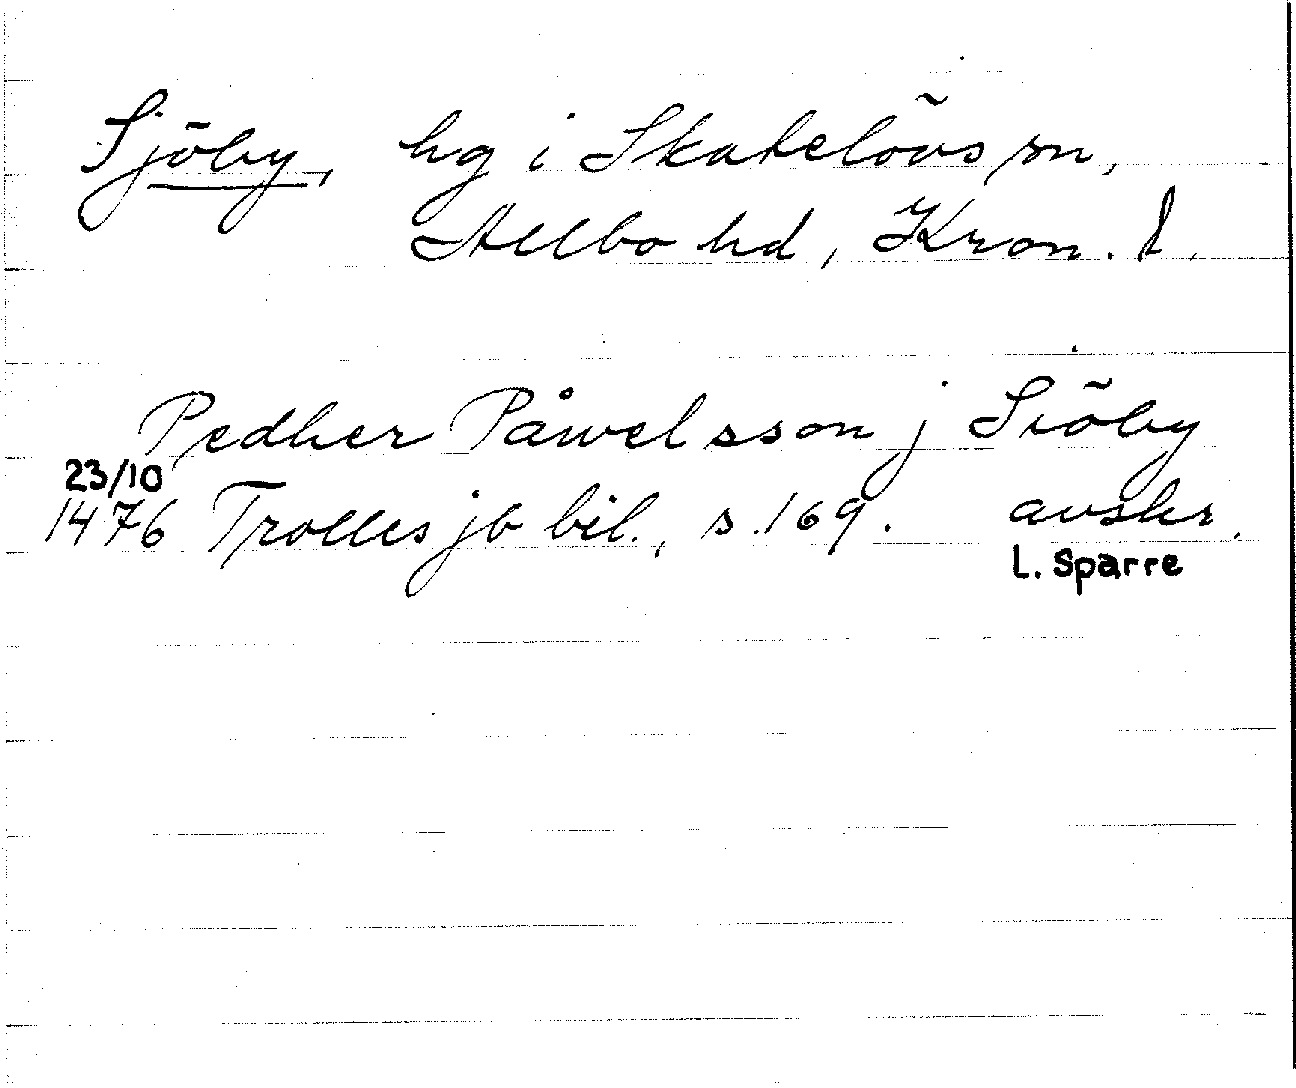 Sjöby, hg i Skatelövs sn,
Allbo hd, Kron. l.
Pedher Påwelsson j Siöby
23/10
1476 Trolles jb bil., s. 169. avskr.
L. Sparre